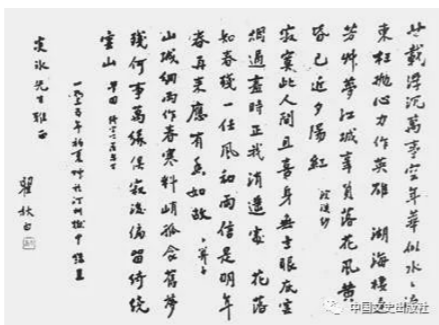 廿載浮沉萬事空年華似水〻流
東枉拋心力作英雄 湖海棲遲
芳艸夢江城辜負落花風黃
昏已近夕陽紅 浣溪紗
寂寞此人間且喜身無主眼底雲
煙過盡時正我逍遙處 花落
知春殘一任風和雨信是明年
春再來應有香如故 卜算子
山城細雨作春寒料峭孤衾舊夢
殘何事萬緣俱寂後偏留綺繞
雲山
一九三五年初夏 汀州獄中
冰先生雅正
瞿秋白
中国文史出版社